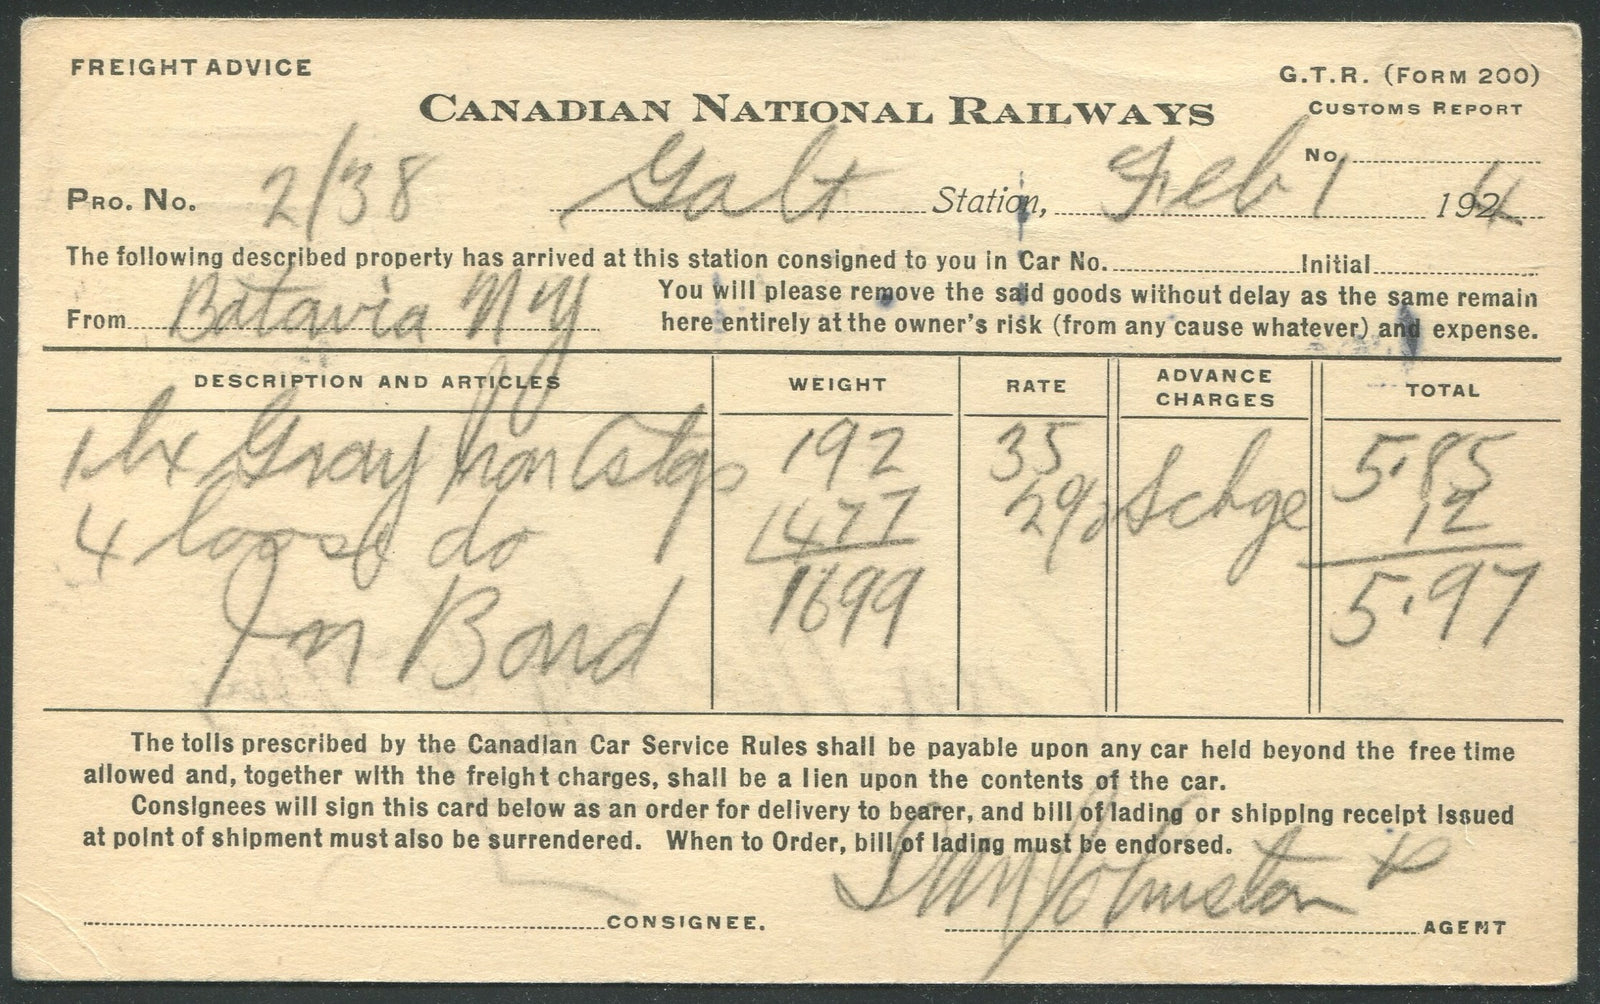 FREIGHT ADVICE
G.T.R. (FORM 200)
CANADIAN NATIONAL RAILWAYS
CUSTOMS REPORT
No.
PRO. NO. 2/38 Galt Station, Feb 1 1924
The following described property has arrived at this station consigned to you in Car No. Initial
From Batavia N Y
You will please remove the said goods without delay as the same remain
here entirely at the owner's risk (from any cause whatever) and expense.
DESCRIPTION AND ARTICLES WEIGHT RATE ADVANCE CHARGES TOTAL
1 bx Gray Iron Cstgs 192 35 5.85
4 loose do 1477 2% Schge 12
In Bond 1699 5.97
The tolls prescribed by the Canadian Car Service Rules shall be payable upon any car held beyond the free time
allowed and, together with the freight charges, shall be a lien upon the contents of the car.
Consignees will sign this card below as an order for delivery to bearer, and bill of lading or shipping receipt issued
at point of shipment must also be surrendered. When to Order, bill of lading must be endorsed.
Johnston
CONSIGNEE. AGENT